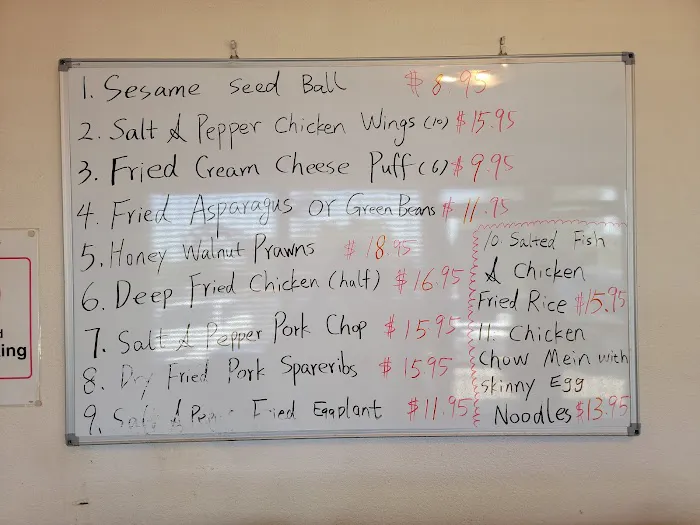 1. Sesame Seed Ball $8.95
2. Salt & Pepper Chicken Wings (10) $15.95
3. Fried Cream Cheese Puff (6) $9.95
4. Fried Asparagus or Green Beans $11.95
5. Honey Walnut Prawns $18.95
6. Deep Fried Chicken (half) $16.95
7. Salt & Pepper Pork Chop $15.95
8. Dry Fried Pork Spareribs $1595
9. Salt & Pepper Fried Eggplant $11.95
10. Salted Fish
& Chicken
Fried Rice $15.95
11. Chicken
Chow Mein with
skinny Egg
Noodles $13.95
ing